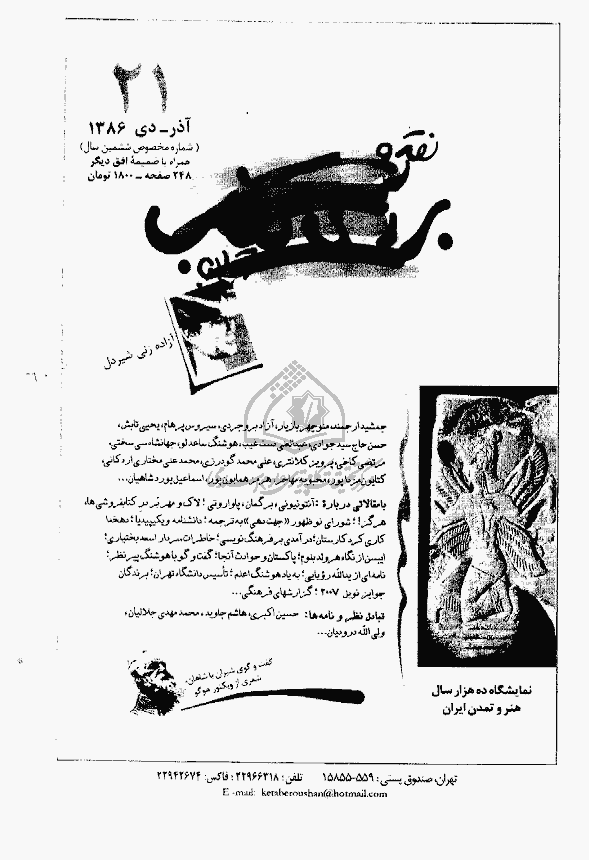 ۲۱
آذر ـ دی ۱۳۸۶
(شماره مخصوص ششمین سال)
همراه با ضمیمهٔ افق دیگر
۲۴۸ صفحه ـ ۱۸۰۰ تومان
نقد و
آزاده زنی شیردل
جمشید ارجمند، منوچهر بازیار، آزاد بروجردی، سیروس پرهام، یحیی تابش،
حسن حاج سید جوادی، عبدالعلی دست غیب، هوشنگ ساعدلو، جهانشاه سی سختی،
مرتضی کاخی، پرویز کلانتری، علی محمد گودرزی، محمد علی مختاری اردکانی،
کتایون مزداپور، محبوبه مهاجر، هرمز همایون پور، اسماعیل پورد شاهیان...
با مقالاتی دربارهٔ: آنتونیونی، برگمان، پاواروتی؛ لاک و مهر بُر در کتابفروشی ها،
هرگز!؛ شورای نوظهور «جهت دهی» به ترجمه؛ دانشنامه ویکیپدیا؛ دهخدا
کاری کرد کارستان؛ درآمدی بر فرهنگ نویسی؛ خاطرات سردار اسعد بختیاری؛
ایبسن از نگاه هرولد بلوم؛ پاکستان و حوادث آنجا؛ گفت و گو با هوشنگ پیرنظر؛
نامه ای از یدالله رؤیایی؛ به یاد هوشنگ اعلم؛ تأسیس دانشگاه تهران؛ برندگان
جوایز نوبل ۲۰۰۷؛ گزارشهای فرهنگی...
تبادل نظر و نامه ها: حسین اکبری، هاشم جاوید، محمد مهدی جلالیان،
ولی الله درودیان...
گفت و گوی شیران با شاهان،
شعری از ویکتور هوگو
نمایشگاه ده هزار سال
هنر و تمدن ایران
تهران، صندوق پستی: ۵۵۹-۱۵۸۵۵ تلفن: ۲۲۹۶۶۳۱۸؛ فاکس: ۲۲۹۴۲۶۷۴
E -mail: ketaberoushan@hotmail.com